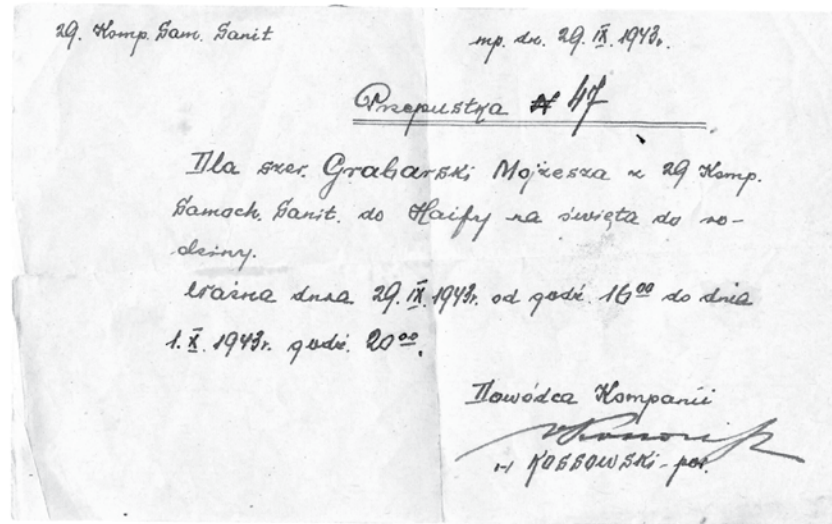 29. Komp. Sam. Sanit
mp. dn. 29.IX.1943r.
Przepustka N 47
Dla szer. Grabarski Mojżesza z 29 Komp.
Samoch. Sanit. do Haify na święta do ro-
dziny.
Ważna dnia 29.IX.1943r. od godz. 16⁰⁰ do dnia
1.X.1943r. godz. 20⁰⁰.
Dowódca Kompanii
/-/ KOSSOWSKI - por.